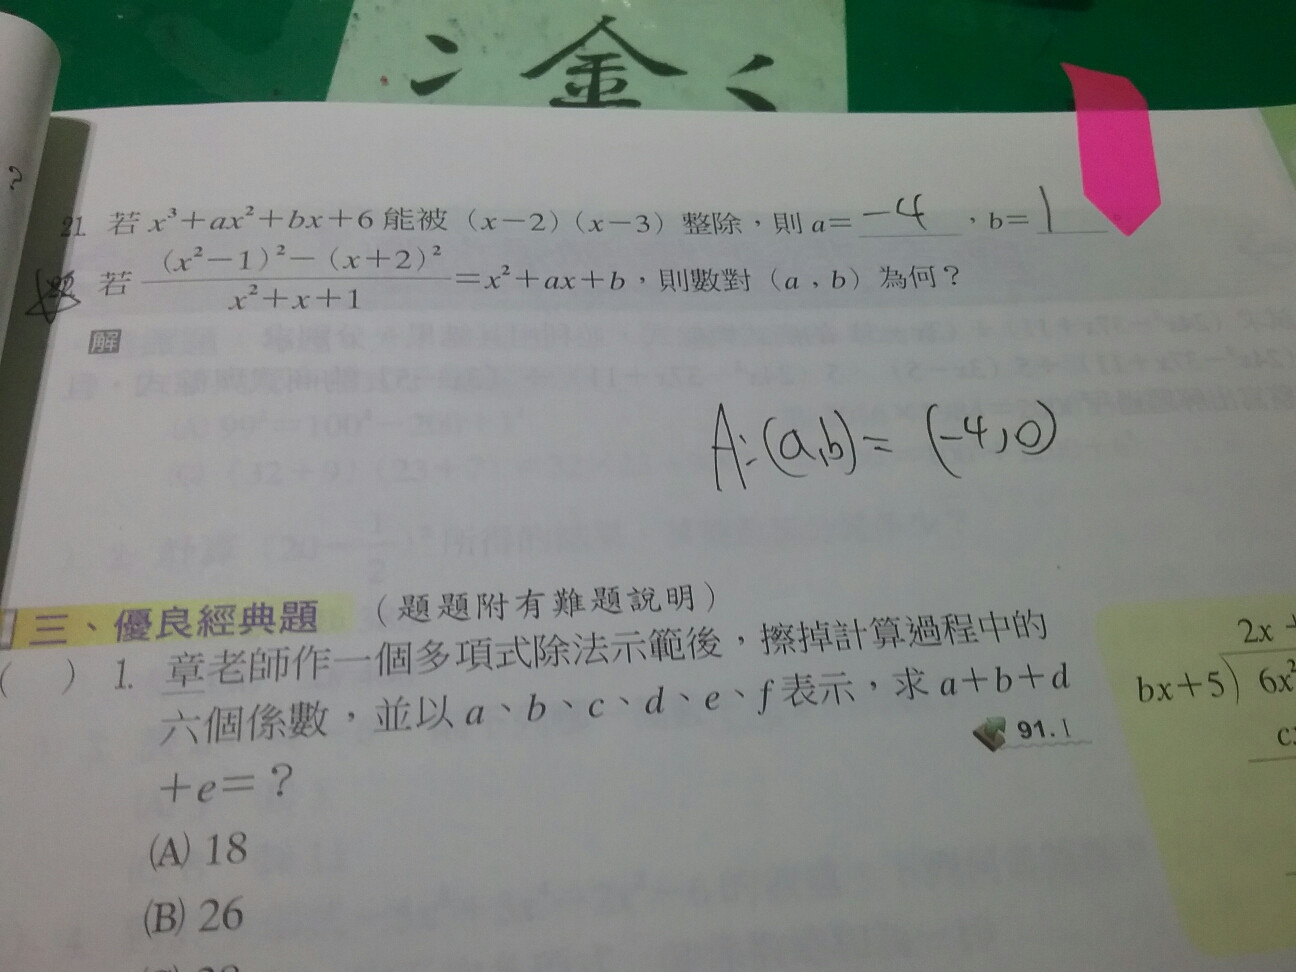 金
21. 若 x³+ax²+bx+6 能被 (x-2)(x-3) 整除，則 a= -4 ，b= 1 。
若 (x²-1)²-(x+2)² / x²+x+1 =x²+ax+b，則數對 (a，b) 為何？
解
A:(a,b)= (-4,0)
三、優良經典題 (題題附有難題說明)
( ) 1. 章老師作一個多項式除法示範後，擦掉計算過程中的
六個係數，並以 a、b、c、d、e、f 表示，求 a+b+d
91.1
+e=？
(A) 18
(B) 26
2x +
bx+5) 6x²